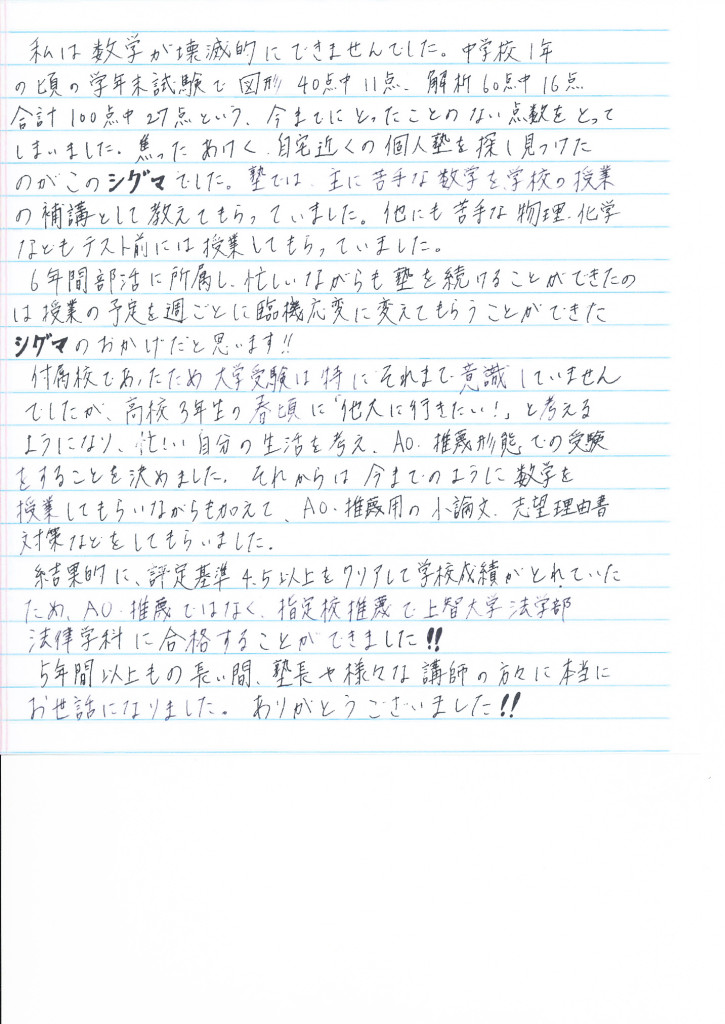 私は数学が壊滅的にできませんでした。中学校1年
の頃の学年末試験で図形 40点中11点、解析60点中16点
合計100点中27点という、今までにとったことのない点数をとって
しまいました。焦ったあげく、自宅近くの個人塾を探し見つけた
のがこのシグマでした。塾では、主に苦手な数学を学校の授業
の補講として教えてもらっていました。他にも苦手な物理、化学
などもテスト前には授業してもらっていました。
6年間部活に所属し、忙しいながらも塾を続けることができたの
は授業の予定を週ごとに臨機応変に変えてもらうことができた
シグマのおかげだと思います!!
付属校であったため大学受験は特にそれまで意識していません
でしたが、高校3年生の春頃に「他大に行きたい!」と考える
ようになり、忙しい自分の生活を考え、AO・推薦形態での受験
をすることを決めました。それからは今までのように数学を
授業してもらいながらも加えて、AO・推薦用の小論文、志望理由書
対策などをしてもらいました。
結果的に、評定基準4.5以上をクリアして学校成績がとれていた
ため、AO・推薦ではなく、指定校推薦で上智大学法学部
法律学科に合格することができました!!
5年間以上もの長い間、塾長や様々な講師の方々に本当に
お世話になりました。ありがとうございました!!